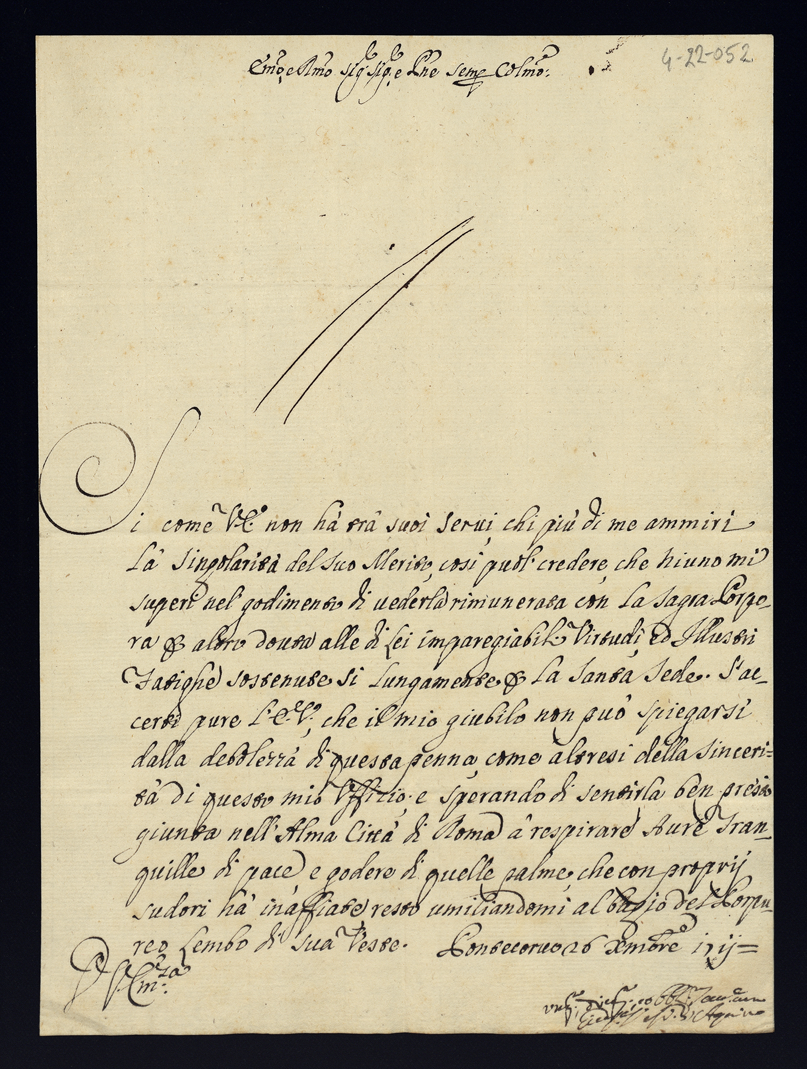 4-22-052
Emo, e Rmo Sig: Sig:, e Pne Semp Colmo:
Si come V.E. non hà trà suoi Serui, chi più di me ammiri
la Singolarità del suo Merito, così puol' credere, che niuno mi
superi nel godimento di uederla rimunerata con la Sagra Porpo-
ra & altro douta alle di Lei imparegiabili Virtudi ed Illustri
Fatighe sostenute si lungamente & la Santa Sede. S'ac-
certi pure l'E.V., che il mio giubilo non può spiegarsi
dalla debolezza di questa penna, come altresi della sinceri-
tà di questo mio Uffizio: e sperando di sentirla ben presto
giunta nell'Alma Città di Roma à respirare Aure Tran-
quille di pace e godere di quelle palme, che con proprij
sudori hà inaffiate, resto umiliandomi al bagio del Porpu-
reo Lembo di sua Veste. Pontecoruo 26 Xmbre 17ij=
D V. Emza:
d'Aquino